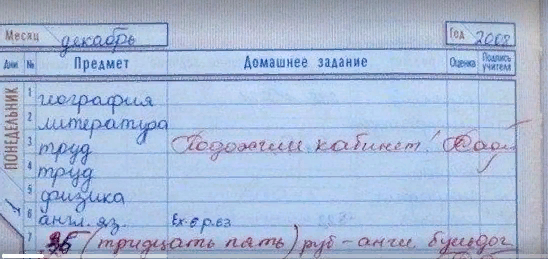 Месяц декабрь Год 2008
Дни № Предмет Домашнее задание Оценка Подпись учителя
ПОНЕДЕЛЬНИК 1
1 география
2 литература
3 труд Подожгли кабинет!
4 труд
5 физика
6 англ. яз. Ex-6 p.63
7 35 (тридцать пять) руб - англ. бульдог